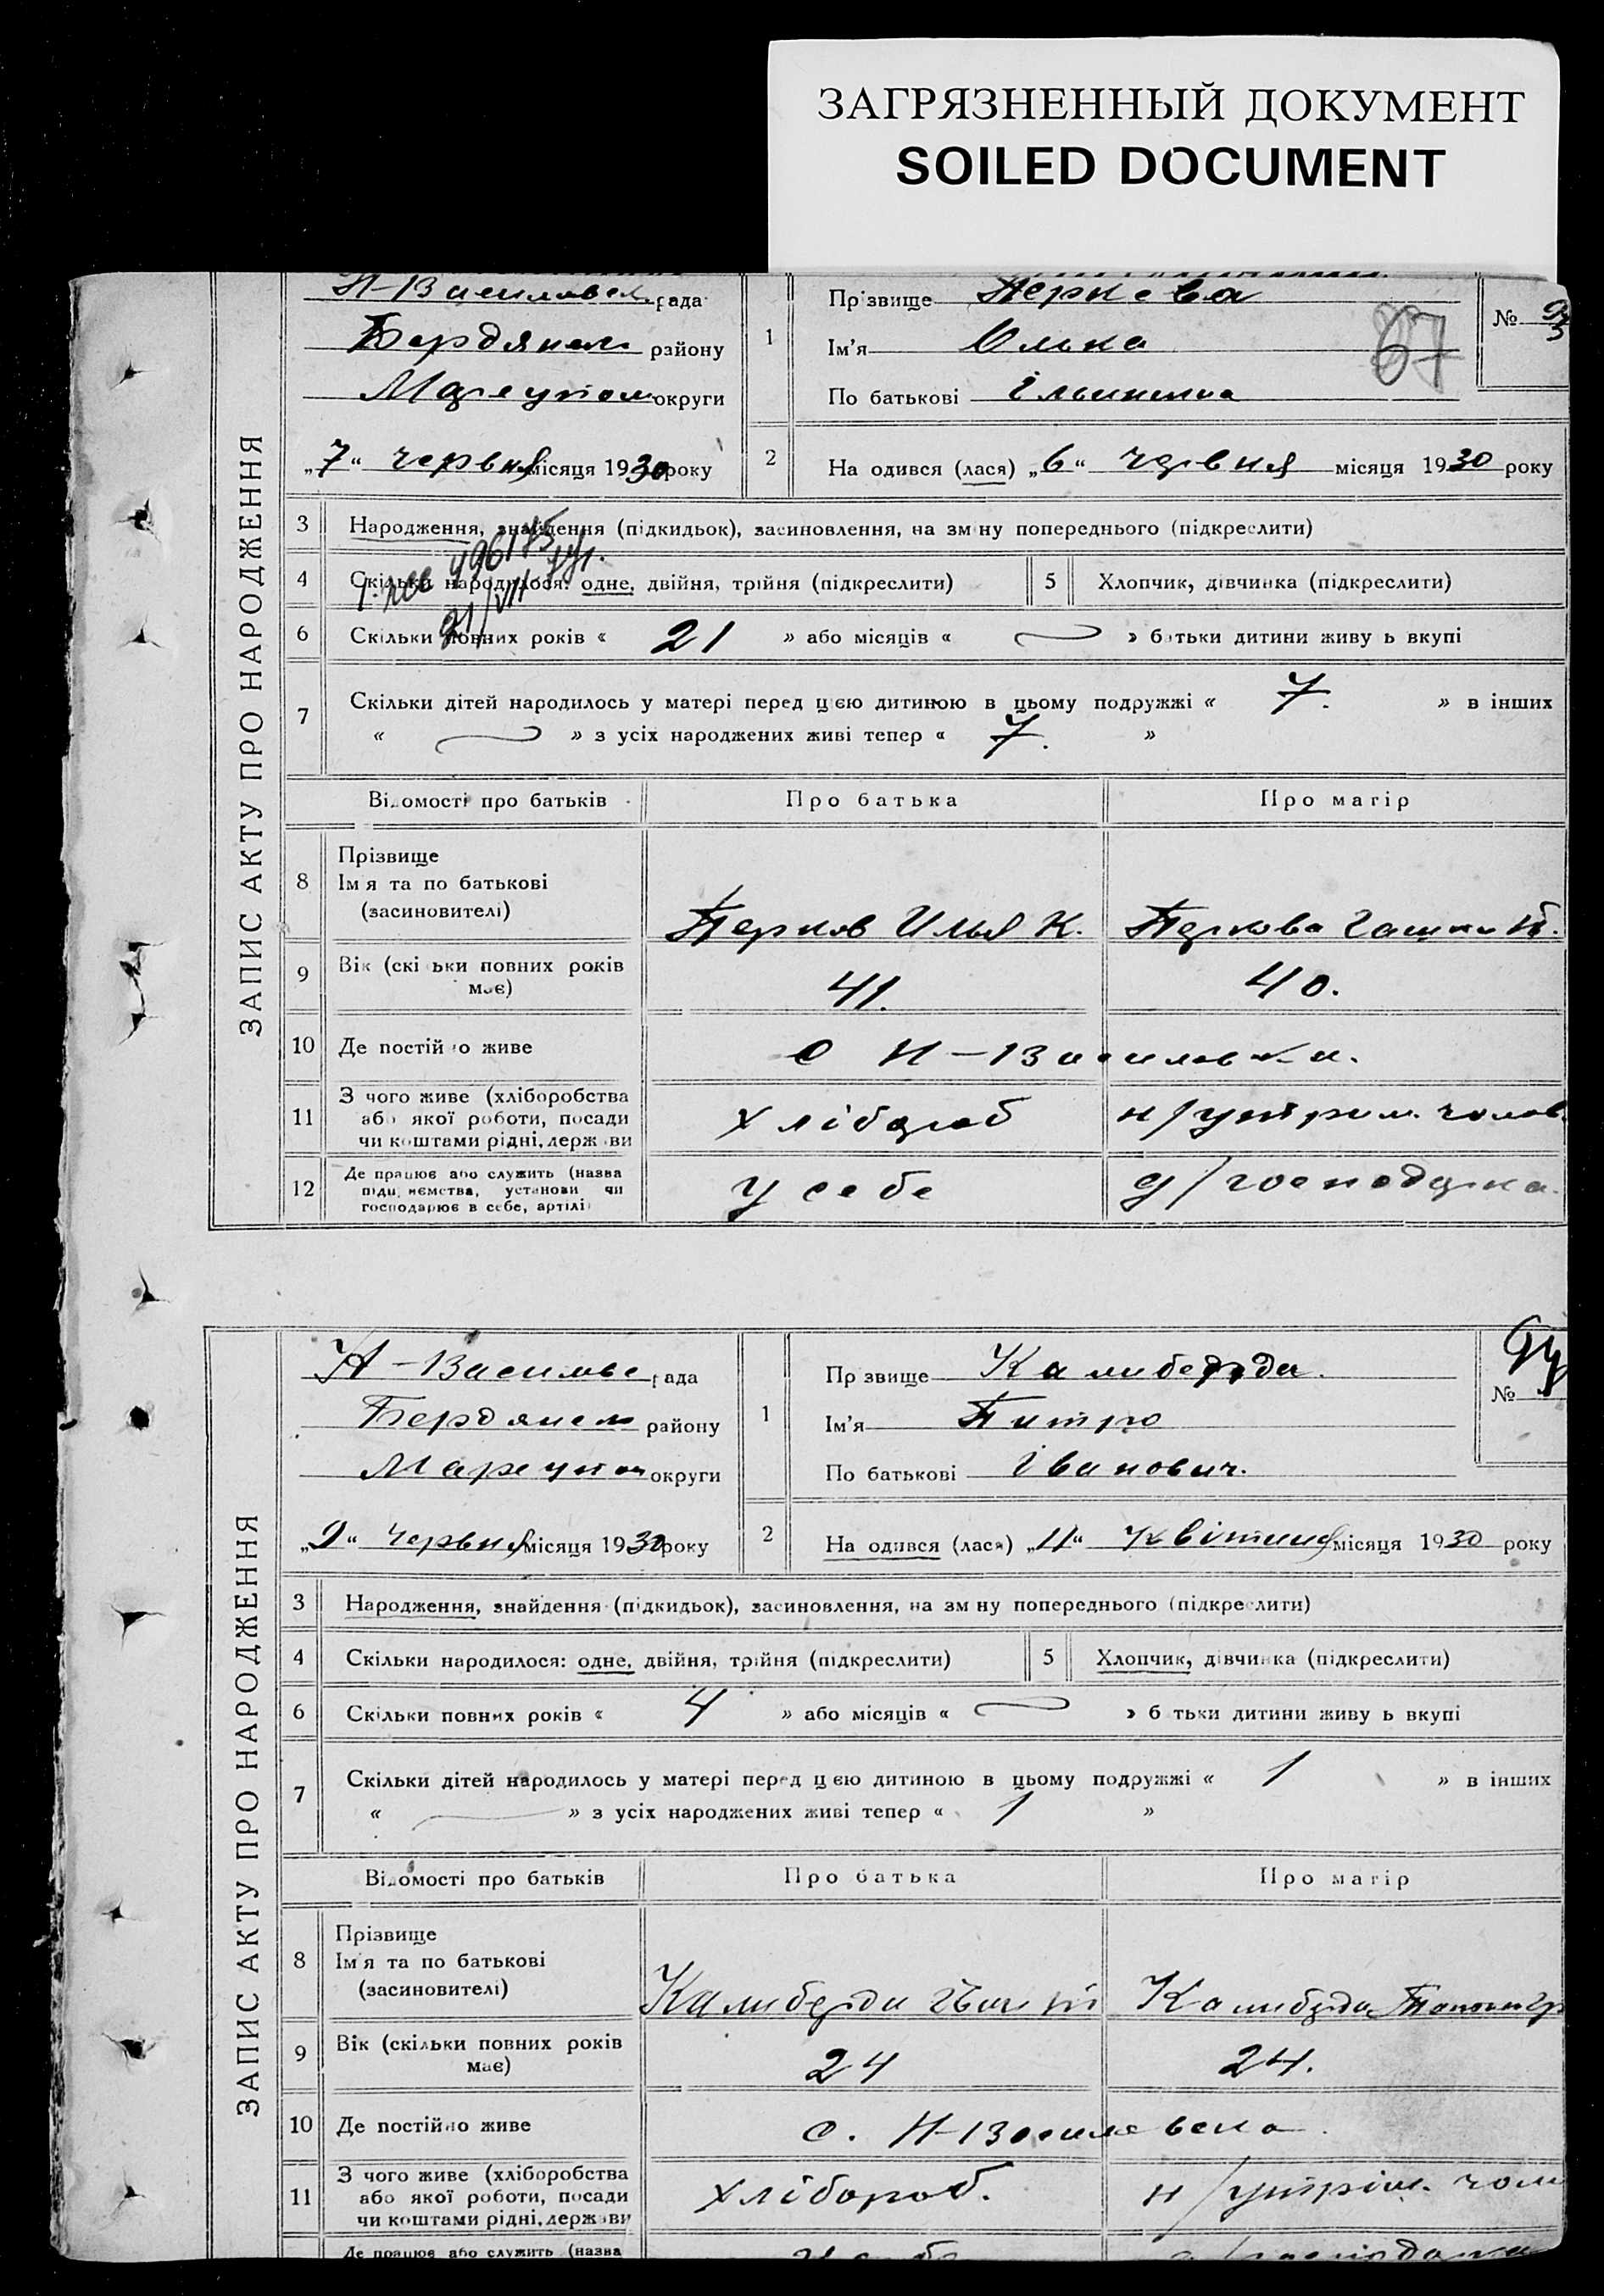 ЗАГРЯЗНЕННЫЙ ДОКУМЕНТ
SOILED DOCUMENT
ЗАПИС АКТУ ПРО НАРОДЖЕННЯ
рада
Бердянськ району
Мареупол округи
„7“ червня місяця 1930 року
1
Прізвище
Ім'я Олька
По батькові Ільинична
67
№
2
На одився (лася) „6“ червня місяця 1930 року
3 Народження, знайдення (підкидьок), засиновлення, на зм ну попереднього (підкреслити)
4 Скільки народилося: одне, двійня, трійня (підкреслити)
5 Хлопчик, дівчинка (підкреслити)
6 Скільки повних років « 21 » або місяців « » батьки дитини живу ь вкупі
7 Скільки дітей народилось у матері перед цією дитиною в цьому подружжі « 7. » в інших
« » з усіх народжених живі тепер « 7. »
Відомості про батьків Про батька Про матір
8 Прізвище
Ім я та по батькові
(засиновителі)
Перков Илья К. Перкова
9 Вік (скі ьки повних років
має)
41. 40.
10 Де постій о живе с Н-Василовка.
11 З чого живе (хліборобства
або якої роботи, посади
чи коштами рідні, держ ви
хлібороб н/утрим. чолов.
12 Де працює або служить (назва
підп. ємства, установи чи
господарює в себе, артілі
у себе д/господарка.
ЗАПИС АКТУ ПРО НАРОДЖЕННЯ
Н-Василвс рада
Бердянськ району
Мареупол округи
„9“ червня місяця 1930 року
1
Пр звище Калиберда.
Ім'я Питро
По батькові Іванович.
№ 94
2
На одився (лася) „11“ квітня місяця 1930 року
3 Народження, знайдення (підкидьок), засиновлення, на зм ну попереднього (підкреслити)
4 Скільки народилося: одне, двійня, трійня (підкреслити)
5 Хлопчик, дівчинка (підкреслити)
6 Скільки повних років « 4 » або місяців « » б тьки дитини живу ь вкупі
7 Скільки дітей народилось у матері перед цією дитиною в цьому подружжі « 1 » в інших
« » з усіх народжених живі тепер « 1 »
Відомості про батьків Про батька Про матір
8 Прізвище
Ім я та по батькові
(засиновителі)
Калиберда Калиберда
9 Вік (скільки повних років
має)
24 24.
10 Де постійно живе с. Н-Василовка
11 З чого живе (хліборобства
або якої роботи, посади
чи коштами рідні, держави
хлібороб. н/утрим. чол
Де працює або служить (назва